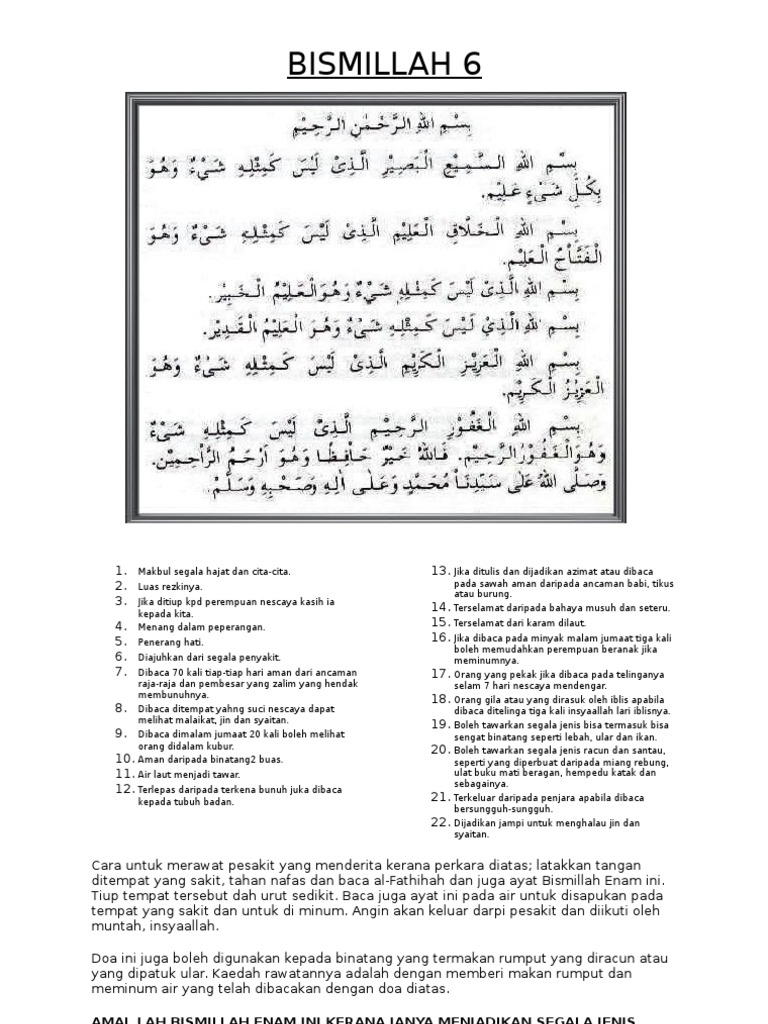 BISMILLAH 6
بِسْمِ اللهِ الرَّحْمٰنِ الرَّحِيْمِ
بِسْمِ اللهِ السَّمِيْعِ الْبَصِيْرِ الَّذِىْ لَيْسَ كَمِثْلِهِ شَىْءٌ وَهُوَ
بِكُلِّ شَىْءٍ عَلِيْم.
بِسْمِ اللهِ الْخَلَّاقِ الْعَلِيْمِ الَّذِىْ لَيْسَ كَمِثْلِهِ شَىْءٌ وَهُوَ
الْفَتَّاحُ الْعَلِيْم.
بِسْمِ اللهِ الَّذِىْ لَيْسَ كَمِثْلِهِ شَىْءٌ وَهُوَالْعَلِيْمُ الْخَبِيْر.
بِسْمِ اللهِ الَّذِيْ لَيْسَ كَمِثْلِهِ شَىْءٌ وَهُوَ الْعَلِيْمُ الْقَدِيْر.
بِسْمِ اللهِ الْعَزِيْزِ الْكَرِيْمِ الَّذِىْ لَيْسَ كَمِثْلِهِ شَىْءٌ وَهُوَ
الْعَزِيْزُ الْكَرِيْم.
بِسْمِ اللهِ الْغَفُوْرِ الرَّحِيْمِ الَّذِىْ لَيْسَ كَمِثْلِهِ شَىْءٌ
وَهُوَالْغَفُوْرُالرَّحِيْم. فَاللهُ خَيْرٌ حَافِظًا وَهُوَ أَرْحَمُ الرَّاحِمِيْن.
وَصَلَّى اللهُ عَلٰى سَيِّدِنَا مُحَمَّدٍ وَعَلٰى اٰلِهِ وَصَحْبِهِ وَسَلَّمْ.
1. Makbul segala hajat dan cita-cita.
2. Luas rezkinya.
3. Jika ditiup kpd perempuan nescaya kasih ia
kepada kita.
4. Menang dalam peperangan.
5. Penerang hati.
6. Diajuhkan dari segala penyakit.
7. Dibaca 70 kali tiap-tiap hari aman dari ancaman
raja-raja dan pembesar yang zalim yang hendak
membunuhnya.
8. Dibaca ditempat yahng suci nescaya dapat
melihat malaikat, jin dan syaitan.
9. Dibaca dimalam jumaat 20 kali boleh melihat
orang didalam kubur.
10. Aman daripada binatang2 buas.
11. Air laut menjadi tawar.
12. Terlepas daripada terkena bunuh juka dibaca
kepada tubuh badan.
13. Jika ditulis dan dijadikan azimat atau dibaca
pada sawah aman daripada ancaman babi, tikus
atau burung.
14. Terselamat daripada bahaya musuh dan seteru.
15. Terselamat dari karam dilaut.
16. Jika dibaca pada minyak malam jumaat tiga kali
boleh memudahkan perempuan beranak jika
meminumnya.
17. Orang yang pekak jika dibaca pada telinganya
selam 7 hari nescaya mendengar.
18. Orang gila atau yang dirasuk oleh iblis apabila
dibaca ditelinga tiga kali insyaallah lari iblisnya.
19. Boleh tawarkan segala jenis bisa termasuk bisa
sengat binatang seperti lebah, ular dan ikan.
20. Boleh tawarkan segala jenis racun dan santau,
seperti yang diperbuat daripada miang rebung,
ulat buku mati beragan, hempedu katak dan
sebagainya.
21. Terkeluar daripada penjara apabila dibaca
bersungguh-sungguh.
22. Dijadikan jampi untuk menghalau jin dan
syaitan.
Cara untuk merawat pesakit yang menderita kerana perkara diatas; latakkan tangan
ditempat yang sakit, tahan nafas dan baca al-Fathihah dan juga ayat Bismillah Enam ini.
Tiup tempat tersebut dah urut sedikit. Baca juga ayat ini pada air untuk disapukan pada
tempat yang sakit dan untuk di minum. Angin akan keluar darpi pesakit dan diikuti oleh
muntah, insyaallah.
Doa ini juga boleh digunakan kepada binatang yang termakan rumput yang diracun atau
yang dipatuk ular. Kaedah rawatannya adalah dengan memberi makan rumput dan
meminum air yang telah dibacakan dengan doa diatas.
AMAL LAH BISMILLAH ENAM INI KERANA IANYA MENJADIKAN SEGALA JENIS